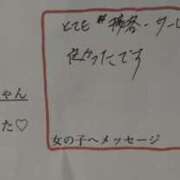 とても 接客・サー
良かったです
ちゃん
た♡
女の子へメッセージ